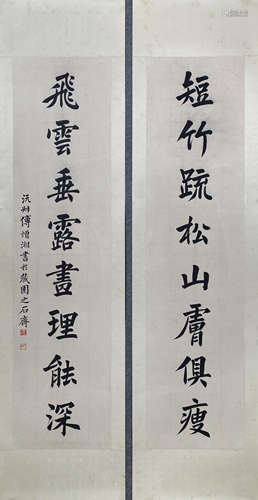 短竹疏松山膚俱瘦
飛雲垂露畫理能深
沅叔傅增湘書於藏園之石齋